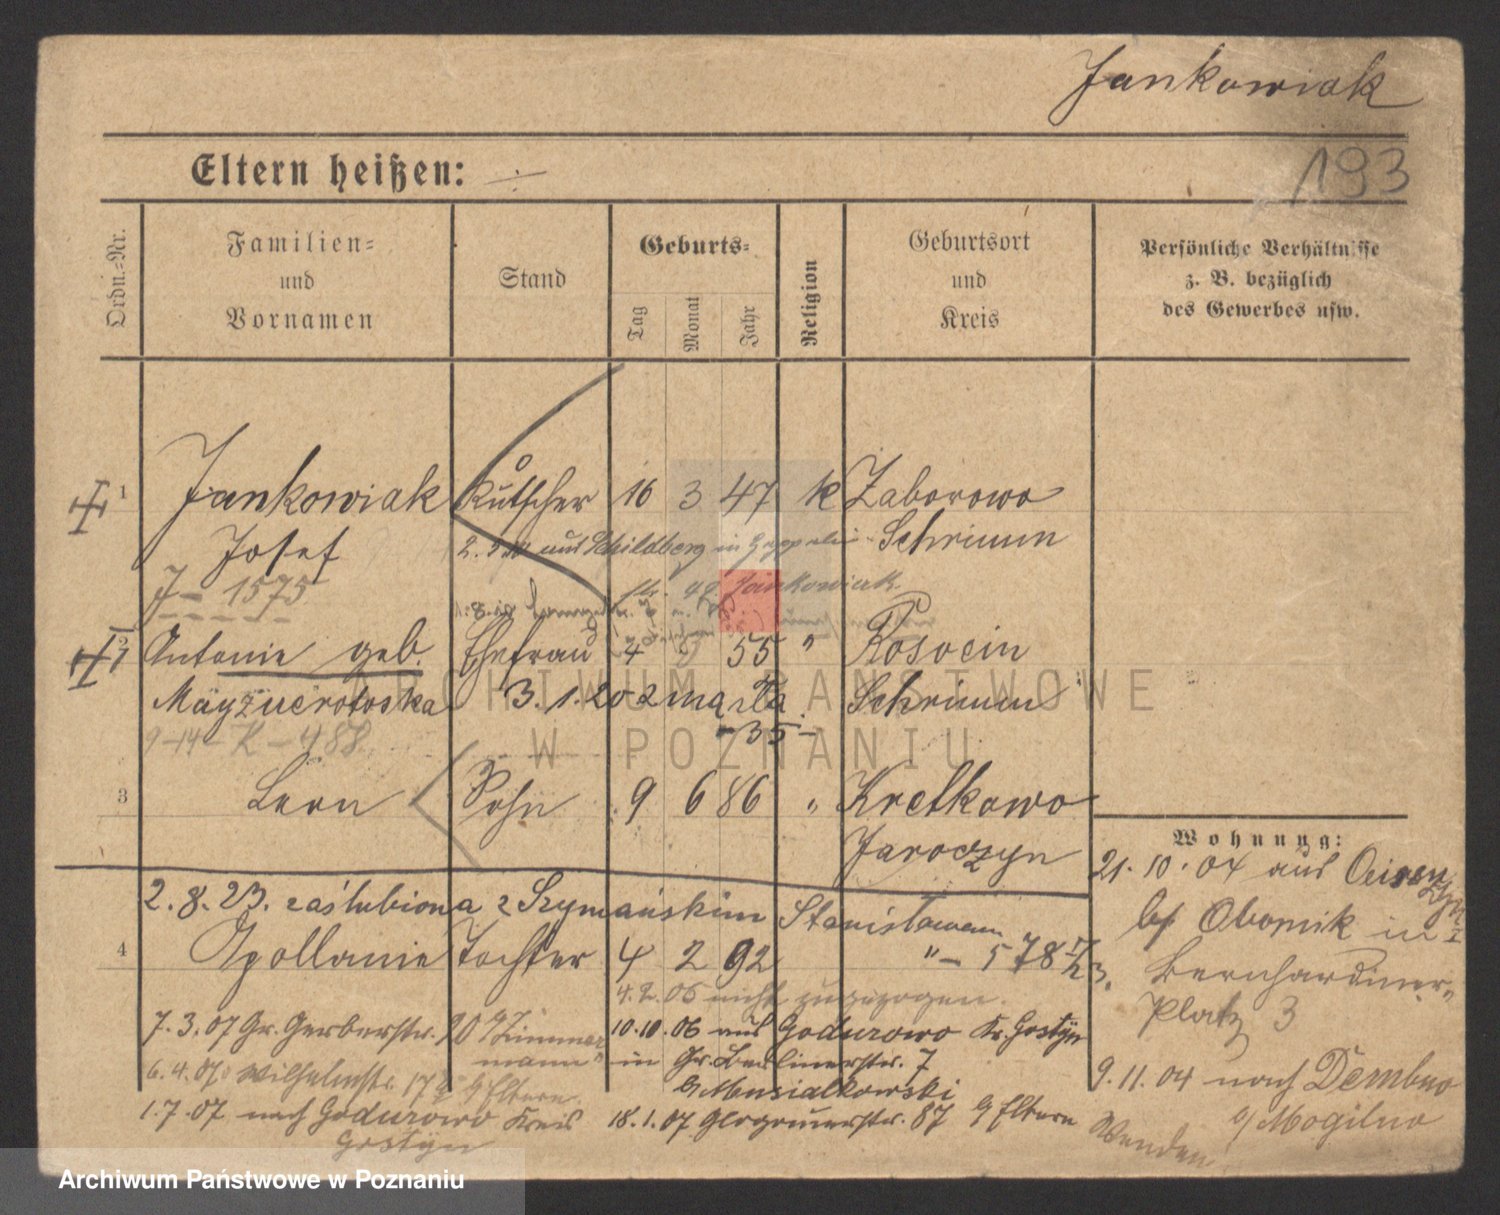 Jankowiak
Eltern heißen: ÷
193
Ordn.-Nr.
Familien-
und
Vornamen
Stand
Geburts-
Tag
Monat
Jahr
Religion
Geburtsort
und
Kreis
Persönliche Verhältnisse
z. B. bezüglich
des Gewerbes usw.
1 Jankowiak Kutscher 16 3 47 k Zaborowo
Josef Schrimm
aus Schildberg in
J - 1575
Jankowiak
Antonie geb. Ehefrau 4 55 " Rosocin
3.1.20 zmarła Schrimm
- 35 -
9-14- K - 488
3 Leon Sohn 9 6 86 " Kretkowo
Jaroczyn
2.8.23. zaślubiona z Szymańskim Stanisławem
4 Apollonie Tochter 4 2 92 " - 578
4.2.06 nicht zugezogen.
7.3.07 Gr. Gerberstr.
10.10.06 aus Godurowo Kr. Gostyn
in Gr. Berlinerstr. 7
b/ Musialkowski
6.4.07 Wilhelmstr. 17 b/ Eltern.
1.7.07 nach Godurowo Kreis
Gostyn
18.1.07 Glogauerstr. 87 b/ Eltern
Wohnung:
21.10.04 aus
b/ Obornik in
Bernhardiner-
Platz 3
9.11.04 nach Dembno
b/ Mogilno
ARCHIWUM PAŃSTWOWE
W POZNANIU
Archiwum Państwowe w Poznaniu